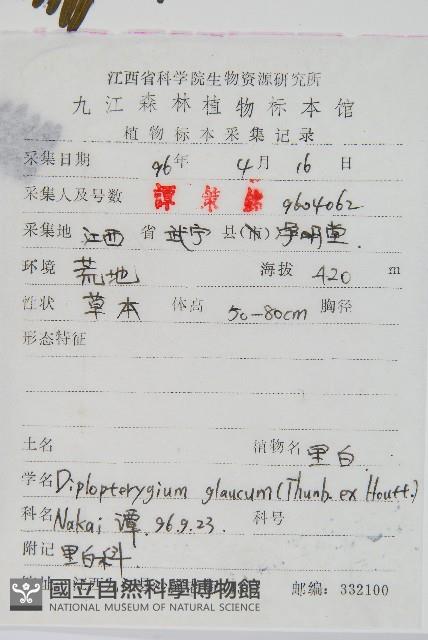 江西省科学院生物资源研究所
九江森林植物标本馆
植物标本采集记录
采集日期 96年 4月 16日
采集人及号数 譚策銘 9604062
采集地 江西 省 武宁 县(市)
环境 荒地 海拔 420 m
性状 草本 体高 50-80cm 胸径
形态特征
土名 植物名 里白
学名 Diplopterygium glaucum (Thunb. ex Houtt.)
科名 Nakai 譚. 96.9.23. 科号
附记 里白科.
邮编: 332100
國立自然科學博物館
NATIONAL MUSEUM OF NATURAL SCIENCE